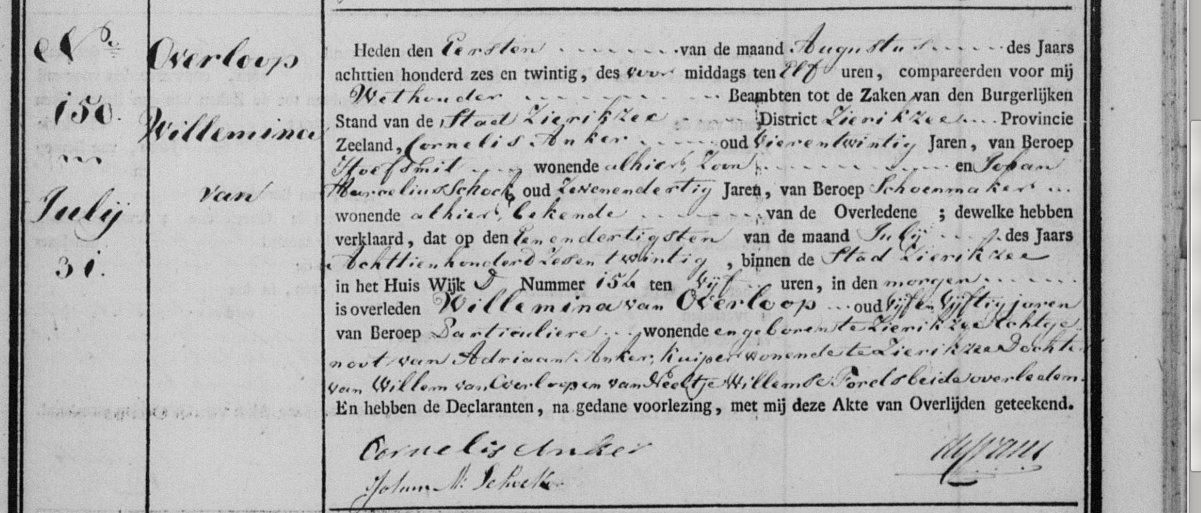 N.o
150.
July
31.
Overloop
Willemina
van
Heden den Eersten van de maand Augustus des Jaars
achttien honderd zes en twintig, des voor middags ten Elf uren, compareerden voor mij
Wethouder Beambten tot de Zaken van den Burgerlijken
Stand van de Stad Zierikzee District Zierikzee Provincie
Zeeland, Cornelis Anker oud Vierentwintig Jaren, van Beroep
Hoefsmit wonende alhier, Zoon en Johan
Marcelius Schock, oud Zevenendertig Jaren, van Beroep Schoenmaker
wonende alhier, bekende van de Overledene ; dewelke hebben
verklaard, dat op den Eenendertigsten van de maand July des Jaars
Achttienhonderd Zesentwintig, binnen de Stad Zierikzee
in het Huis Wijk D Nummer 154 ten Vijf uren, in den morgen
is overleden Willemina van Overloop oud Vijfen Vijftig jaren
van Beroep Particuliere wonende en geboren te Zierikzee Echtge
noot van Adriaan Anker, Kuiper wonende te Zierikzee Dochter
van Willem van Overloop en van Neeltje Willemse beide overleden.
En hebben de Declaranten, na gedane voorlezing, met mij deze Akte van Overlijden geteekend.
Cornelis Anker
Johan M: Schock